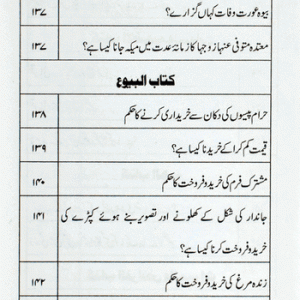 بیوہ عورت وفات کہاں گزارے؟ ۱۳۷
معتدہ متوفی عنہا زوجہا کا زمانۂ عدت میں میکہ جانا کیسا ہے؟ ۱۳۷
کتاب البیوع
حرام پیسوں کی دکان سے خریداری کرنے کا حکم ۱۳۸
قیمت کم کرا کے خریدنا کیسا ہے؟ ۱۳۹
مشترک فرم کی خرید و فروخت کا حکم ۱۴۰
جاندار کی شکل کے کھلونے اور تصویر بنے ہوئے کپڑے کی ۱۴۱
خرید و فروخت کرنا کیسا ہے؟
زندہ مرغ کی خرید و فروخت کا حکم ۱۴۲